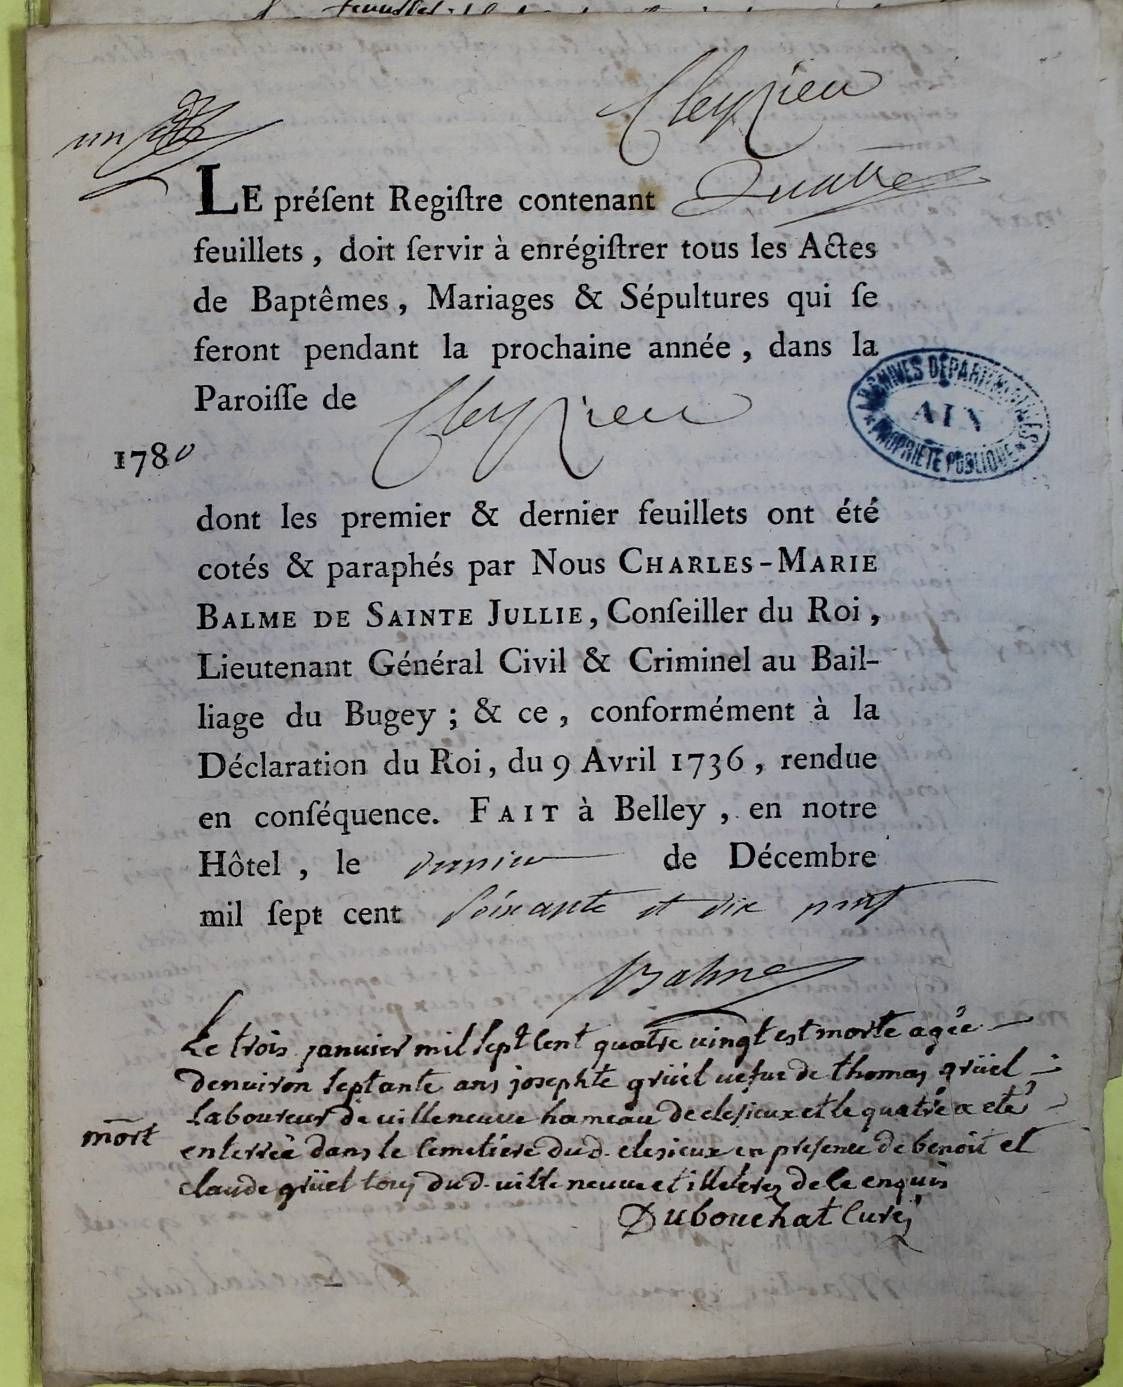 Cleyzieu
un
LE préſent Regiſtre contenant Quatre
feuillets, doit ſervir à enrégiſtrer tous les Actes
de Baptêmes, Mariages & Sépultures qui ſe
feront pendant la prochaine année, dans la
Paroiſſe de Cleyzieu
ARCHIVES DÉPARTEMENTALES
AIN
PROPRIÉTÉ PUBLIQUE
1780
dont les premier & dernier feuillets ont été
cotés & paraphés par Nous CHARLES-MARIE
BALME DE SAINTE JULLIE, Conſeiller du Roi,
Lieutenant Général Civil & Criminel au Bail-
liage du Bugey; & ce, conformément à la
Déclaration du Roi, du 9 Avril 1736, rendue
en conſéquence. FAIT à Belley, en notre
Hôtel, le dernier de Décembre
mil ſept cent soixante et dix neuf
Balme
Le trois janvier mil sept cent quatre vingt est morte agée
denuiron septante ans josephte grüel uefue de thomas grüel
laboureur de uilleneuue hameau de clesieux et le quatre a eté
mort
enterrée dans le cemetiere dud. clesieux en presence de benoit et
claude grüel tous dud. uilleneuue et illeterez de ce enquis
Dubouchat curé